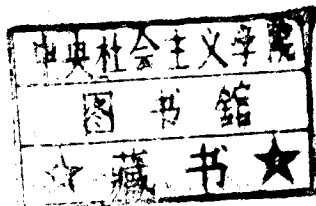 中央社会主义学院
图书馆
☆藏书★